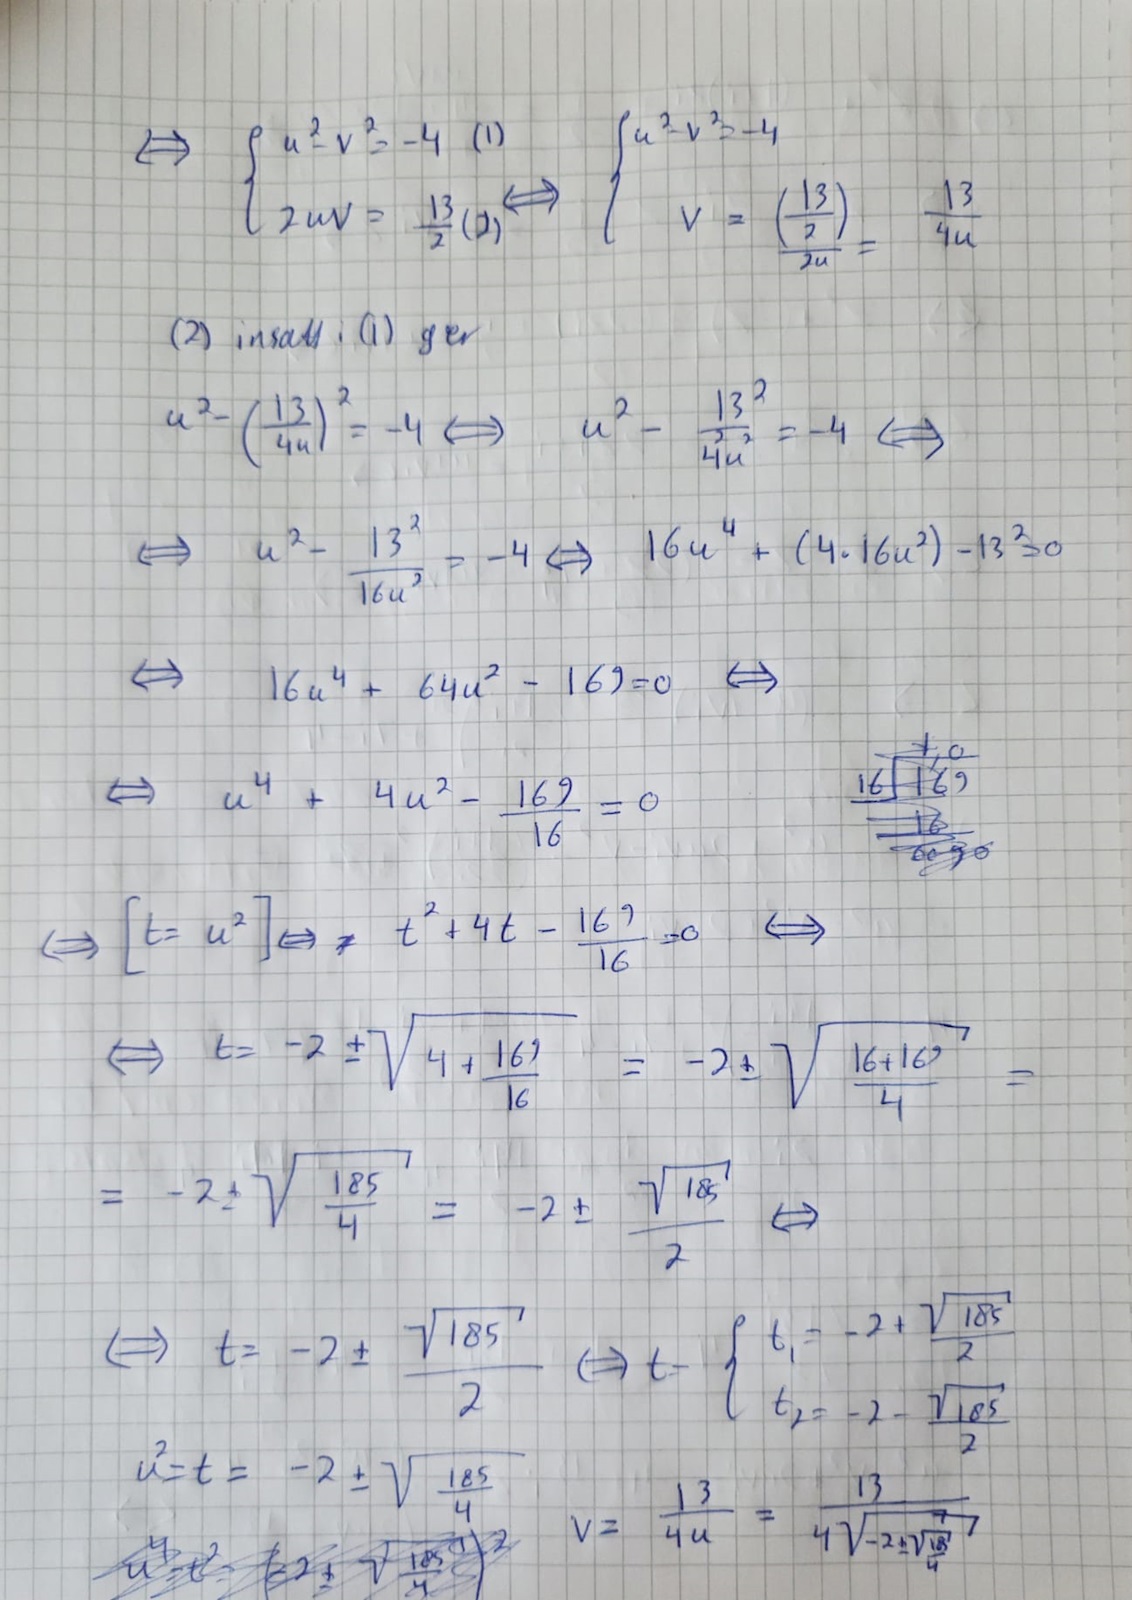 ⇔ { u² - v² = -4 (1) ⇔ { u² - v² = -4
2uv = 13/2 (2) v = (13/2)/2u = 13/4u
(2) insatt i (1) ger
u² - (13/4u)² = -4 ⇔ u² - 13²/4²u² = -4 ⇔
⇔ u² - 13²/16u² = -4 ⇔ 16u⁴ + (4·16u²) - 13² = 0
⇔ 16u⁴ + 64u² - 169 = 0 ⇔
⇔ u⁴ + 4u² - 169/16 = 0
16 169
16
⇔ [t = u²] ⇔ t² + 4t - 169/16 = 0 ⇔
⇔ t = -2 ± √(4 + 169/16) = -2 ± √((16+169)/4) =
= -2 ± √(185/4) = -2 ± √185/2 ⇔
⇔ t = -2 ± √185/2 ⇔ t = { t₁ = -2 + √185/2
t₂ = -2 - √185/2
u² = t = -2 ± √(185/4) v = 13/4u = 13/(4√(-2 ± √(185/4)))